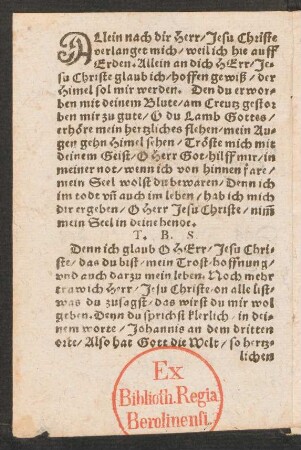 ALlein nach dir Herr/Jesu Christe
verlanget mich/weil ich hie auff
Erden. Allein an dich HErr/Je-
su Christe glaub ich/hoffen gewiß/der
Himel sol mir werden. Den du erwor-
ben mit deinem Blute/am Creutz gestor
ben mir zu gute/O du Lamb Gottes/
erhöre mein hertzliches flehen/mein Au-
gen gehn Himel sehen/Tröste mich mit
deinem Geist/O Herr Got hilff mir/in
meiner not/wenn ich von hinnen fare/
mein Seel wolst du bewaren/Denn ich
im todt vñ auch im leben/hab ich mich
dir ergeben/O Herr Jesu Christe/nim̃
mein Seel in deine hende.
T. B. S
Denn ich glaub O HErr/Jesu Chri-
ste/das du bist/mein Trost hoffnung/
vnd auch darzu mein leben. Noch mehr
traw ich Herr/Jesu Christe on alle list/
was du zusagst/das wirst du mir wol
geben. Denn du sprichst klerlich/in dei-
nem worte/Johannis an dem dritten
orte/Also hat Gott die Welt/so hertz-
lichen
Ex
Biblioth. Regia
Berolinensi.